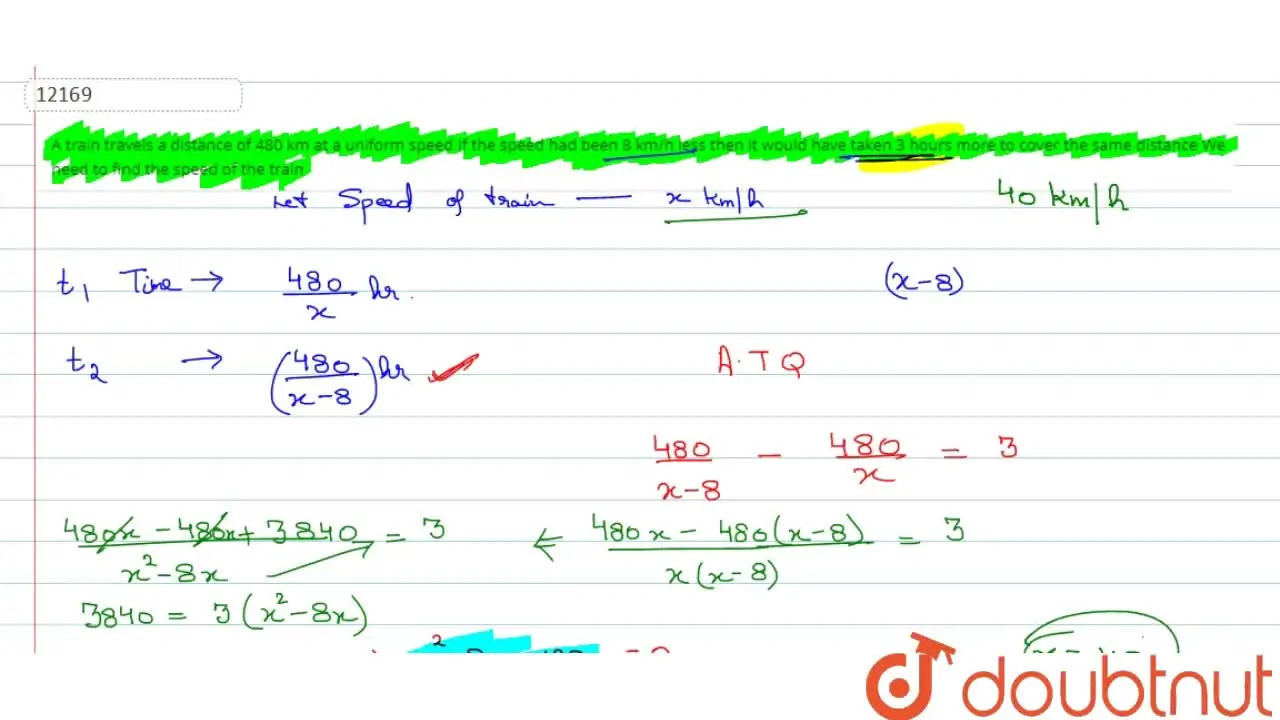 12169
A train travels a distance of 480 km at a uniform speed if the speed had been 8 km/h less then it would have taken 3 hours more to cover the same distance We
need to find the speed of the train
Let Speed of train — x km/h
40 km/h
t1 Time → 480/x hr.
(x-8)
t2 → (480/(x-8)) hr
A.T Q
480/(x-8) - 480/x = 3
(480x - 480x + 3840)/(x²-8x) = 3 ← (480x - 480(x-8))/(x(x-8)) = 3
3840 = 3(x²-8x)
doubtnut